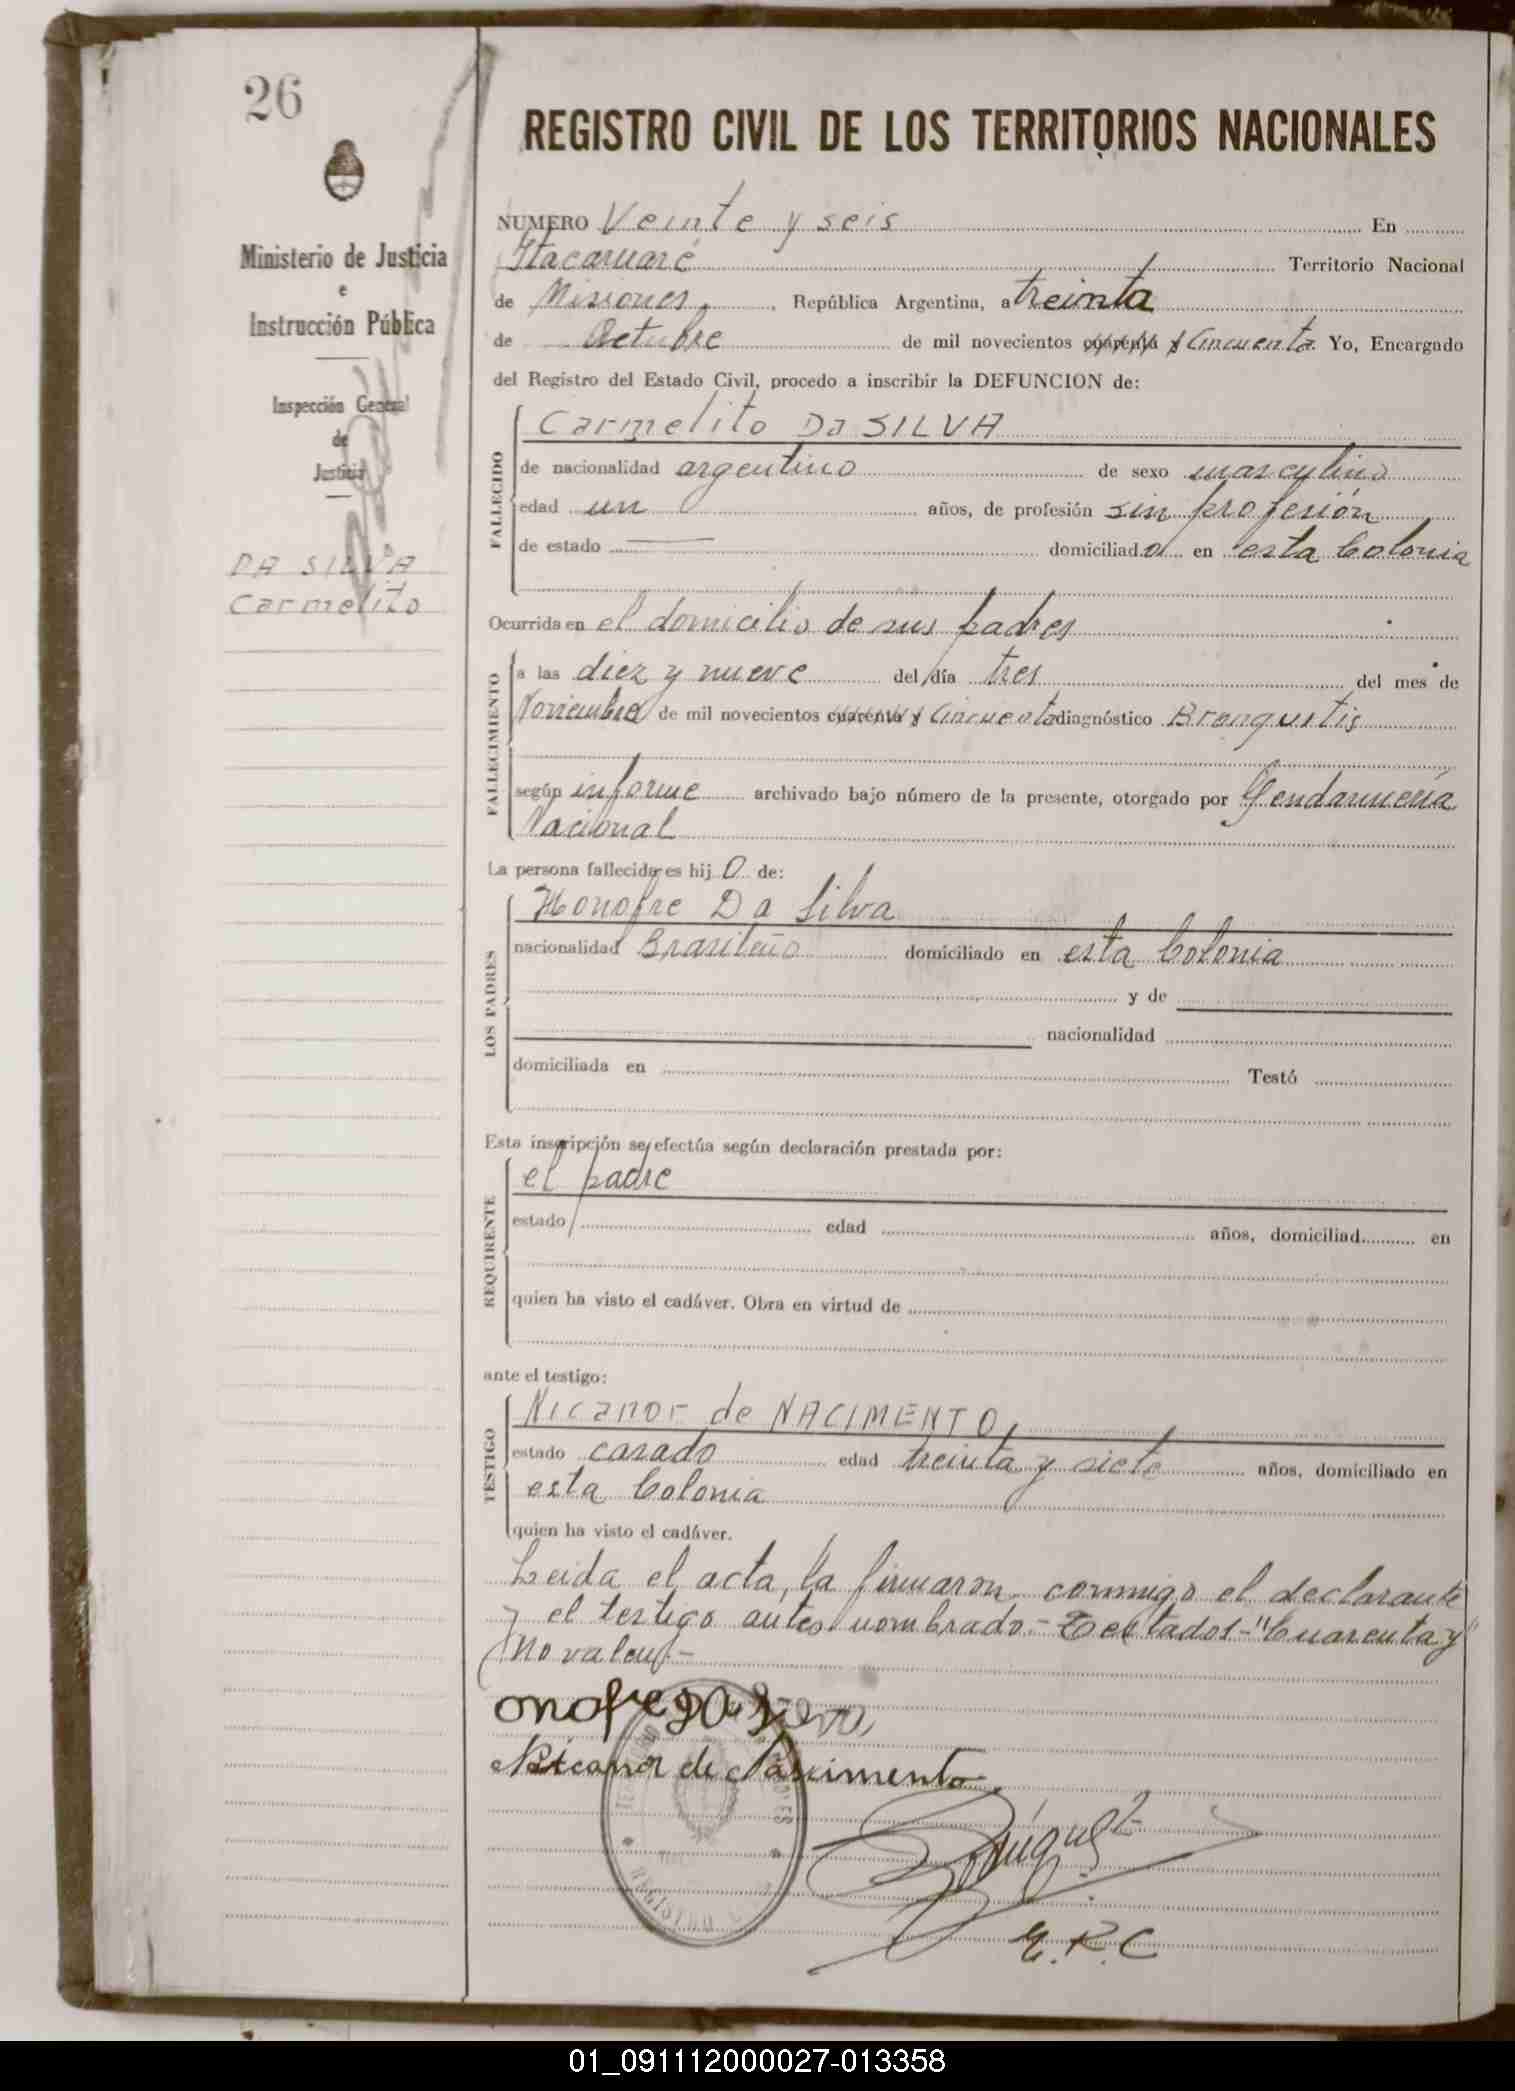 26
Ministerio de Justicia
e
Instrucción Pública
Inspección General
de
Justicia
DA SILVA
Carmelito
REGISTRO CIVIL DE LOS TERRITORIOS NACIONALES
NUMERO Veinte y seis En
Itacaruaré Territorio Nacional
de Misiones, República Argentina, a treinta
de Octubre de mil novecientos cuarenta y Cincuenta Yo, Encargado
del Registro del Estado Civil, procedo a inscribir la DEFUNCION de:
FALLECIDO
Carmelito Da SILVA
de nacionalidad argentino de sexo masculino
edad un años, de profesión sin profesión
de estado — domiciliado en esta Colonia
Ocurrida en el domicilio de sus padres
FALLECIMIENTO
a las diez y nueve del día tres del mes de
Noviembre de mil novecientos cuarenta y Cincuenta diagnóstico Bronquitis
según informe archivado bajo número de la presente, otorgado por Gendarmería
Nacional
La persona fallecida es hijo de:
LOS PADRES
Honofre Da Silva
nacionalidad Brasileño domiciliado en esta Colonia
y de
nacionalidad
domiciliada en Testó
Esta inscripción se efectúa según declaración prestada por:
REQUIRENTE
el padre
estado edad años, domiciliad en
quien ha visto el cadáver. Obra en virtud de
ante el testigo:
TESTIGO
Nicanor de NACIMENTO,
estado casado edad treinta y siete años, domiciliado en
esta Colonia
quien ha visto el cadáver.
Leida el acta, la firmaron conmigo el declarante
y el testigo antes nombrado.- Testados-"Cuarenta y"
no valen.-
onofre da Silva
Nicanor de Nascimento
E.R.C
REGISTRO
01_091112000027-013358